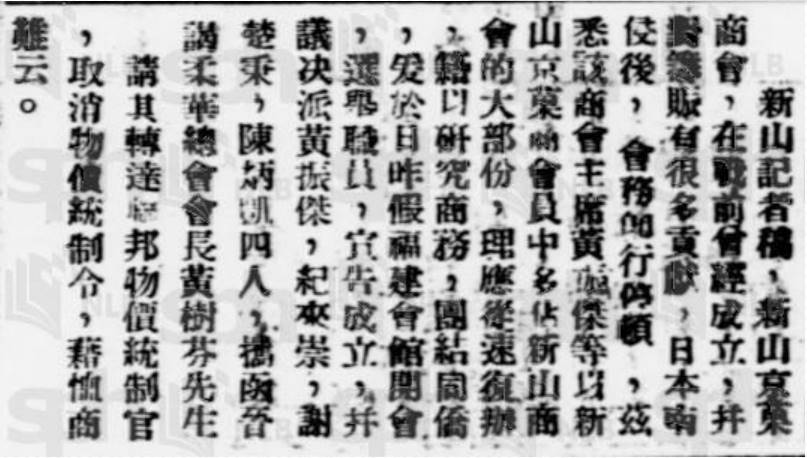 新山記者稿，新山京菓
商會，在戰前曾經成立，幷
對籌賑有很多貢獻，日本南
侵後，會務卽行停頓，茲
悉該商會主席黃振傑等以新
山京菓商會員中多佔新山商
會的大部份，理應從速復辦
，藉以研究商務，團結同僑
，爰於日昨假福建會館開會
，選舉職員，宣告成立，幷
議决派黃振傑，紀來崇，謝
楚秉，陳炳凱四人，攜函晉
謁柔華總會會長黃樹芬先生
請其轉達邦物價統制官
，取消物價統制令，藉恤商
難云。